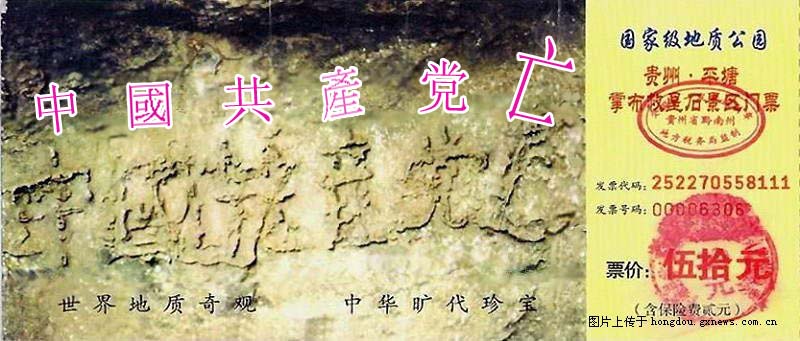 中國共產党亡
中國共産党亡
世界地质奇观 中华旷代珍宝
国家级地质公园
贵州·平塘
掌布救星石景区门票
贵州省黔南州
地方税务局监制
发票代码: 252270558111
发票号码: 00006306
票价: 伍拾元
(含保险费贰元)
图片上传于 hongdou.gxnews.com.cn